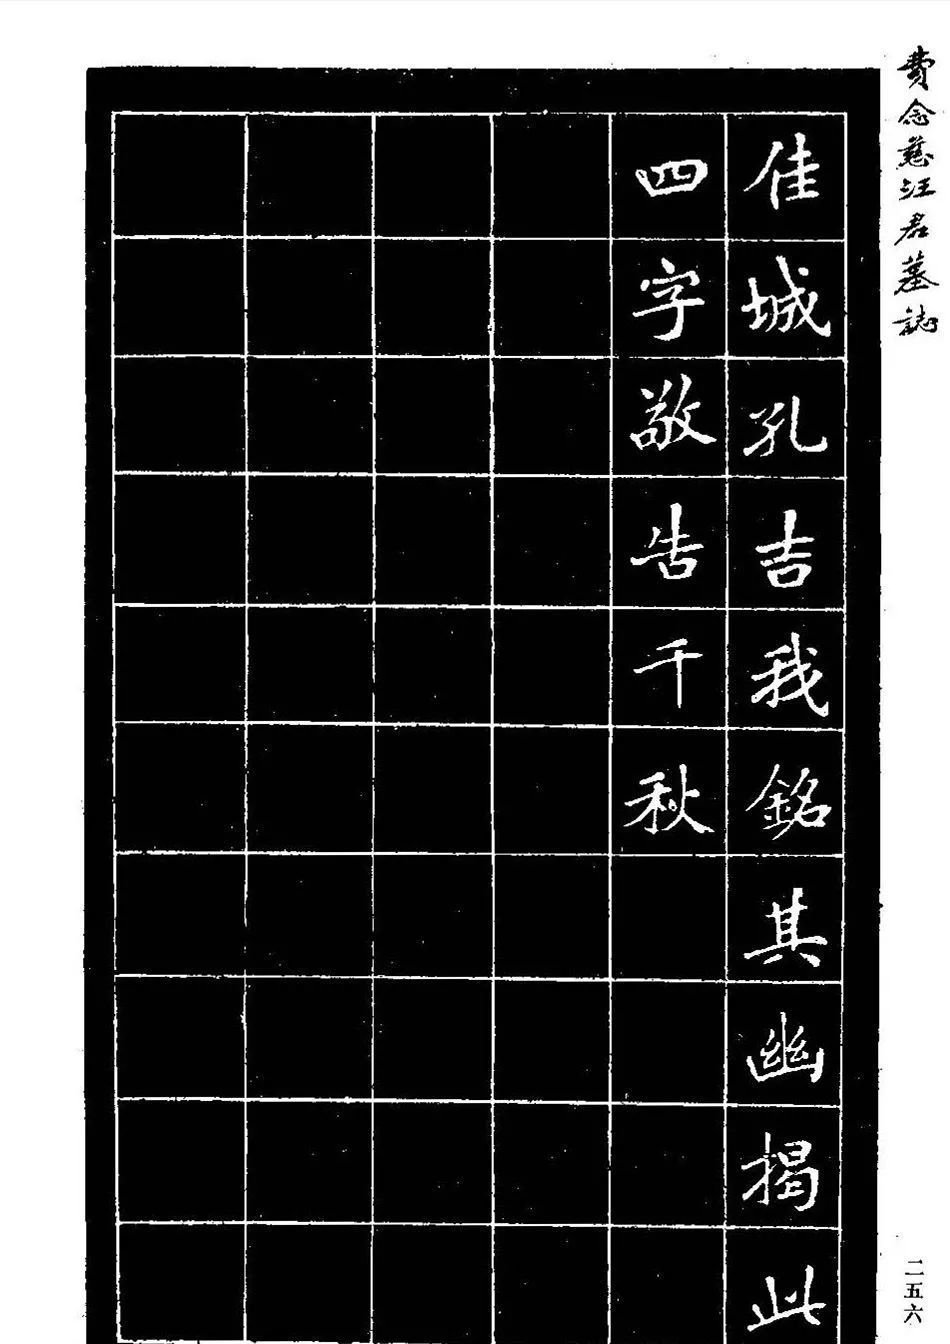 費念慈汪君墓誌
佳城孔吉我銘其幽揭此
四字敬告千秋
二五六